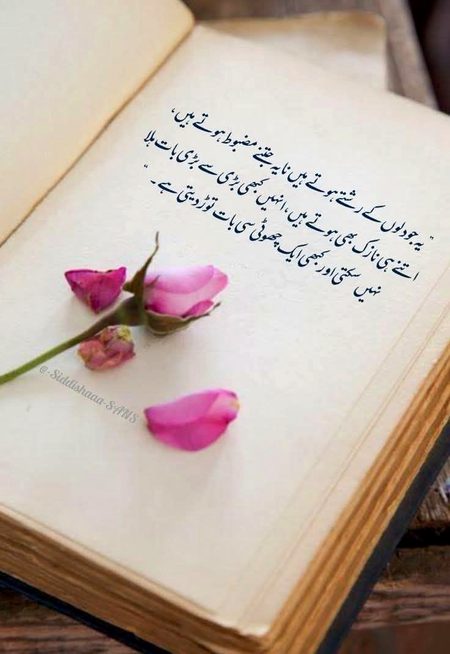 "یہ جو دلوں کے رشتے ہوتے ہیں نا یہ جتنے مضبوط ہوتے ہیں،
اتنے ہی نازک بھی ہوتے ہیں، انہیں کبھی بڑی سے بڑی بات ہلا
نہیں سکتی اور کبھی ایک چھوٹی سی بات توڑ دیتی ہے۔"
@-Siddishaaa-SANS